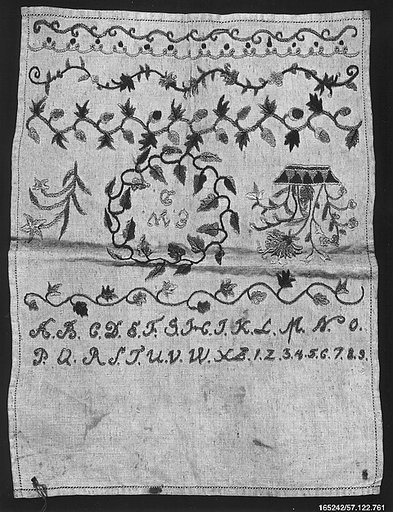 G
M J
A. B. C. D. E. F. G. H. I. K. L. M. N. O.
P. Q. R. S. T. U. V. W. X. Z. 1. 2. 3. 4. 5. 6. 7. 8. 9.
165242/57.122.761